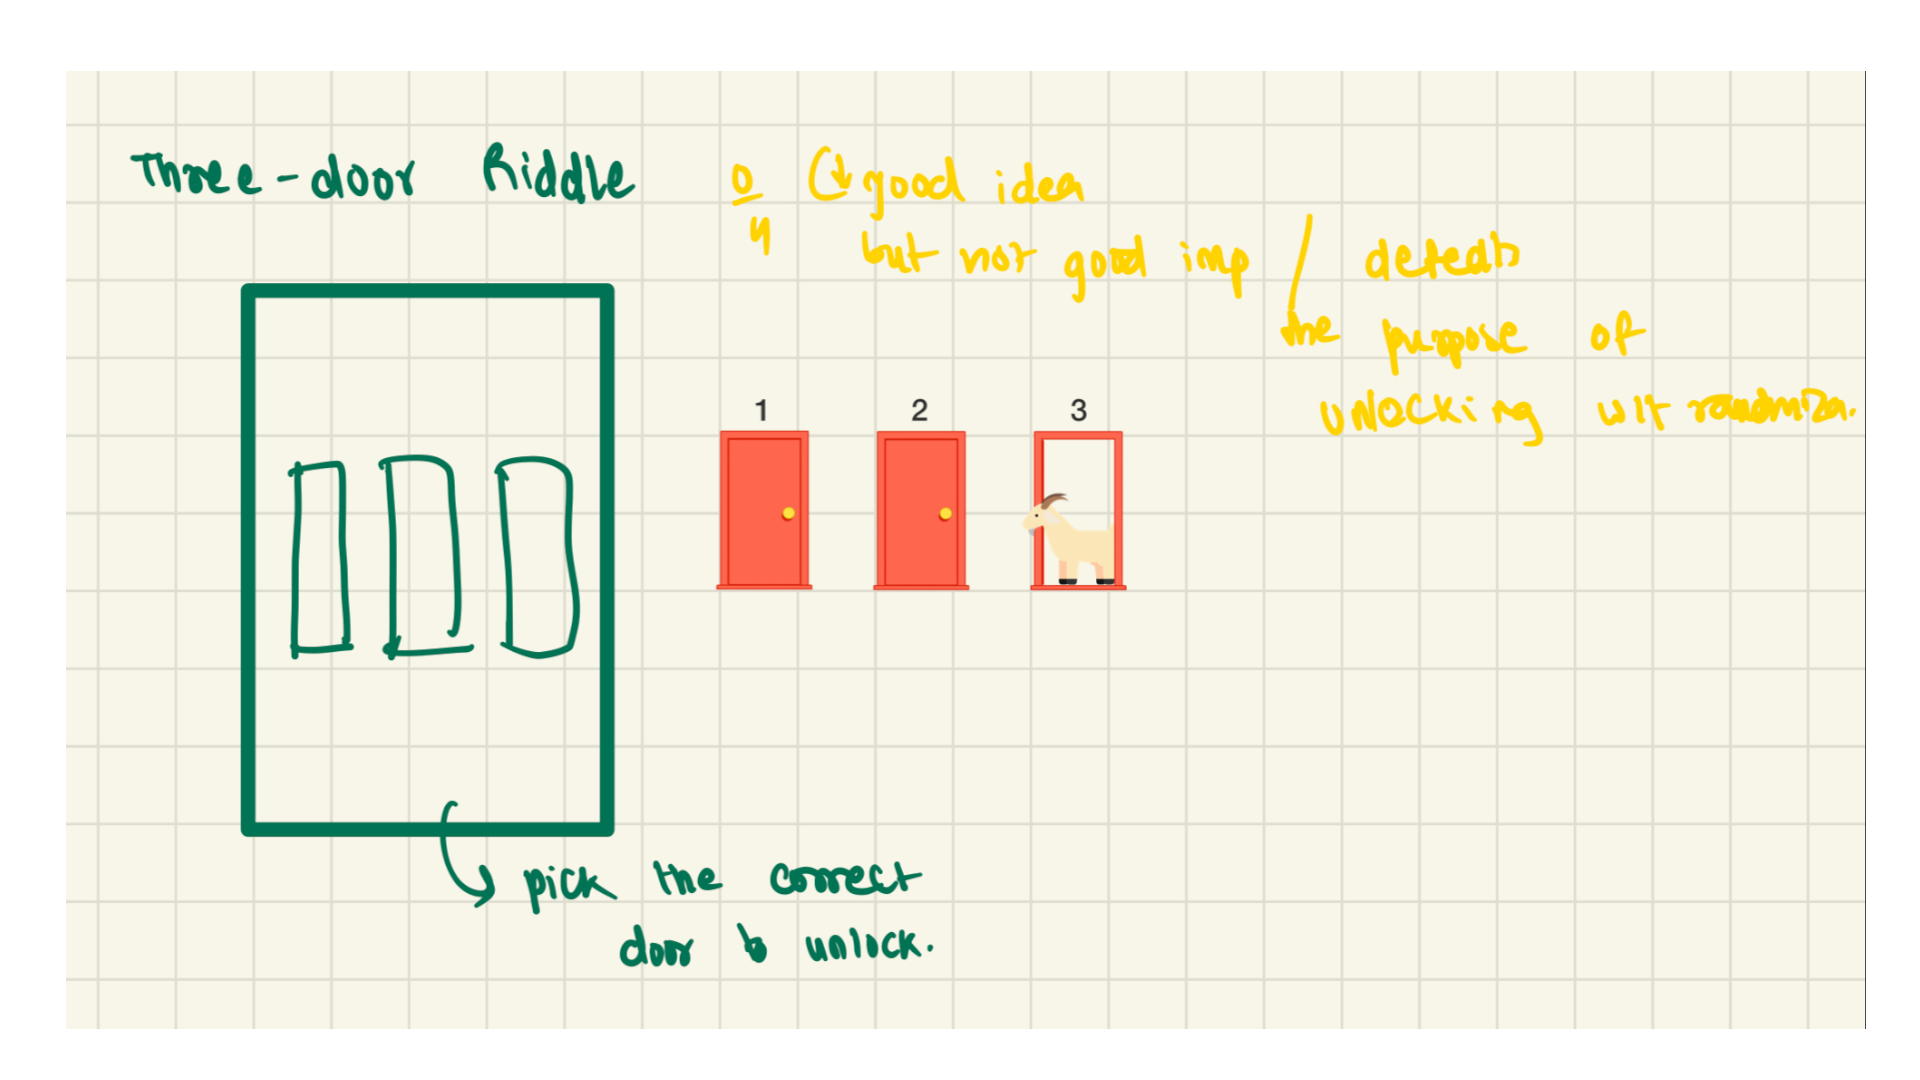 Three-door Riddle
0/4 good idea
but not good imp / defeats
the purpose of
unlocking wit randmiza.
1 2 3
pick the correct
door to unlock.